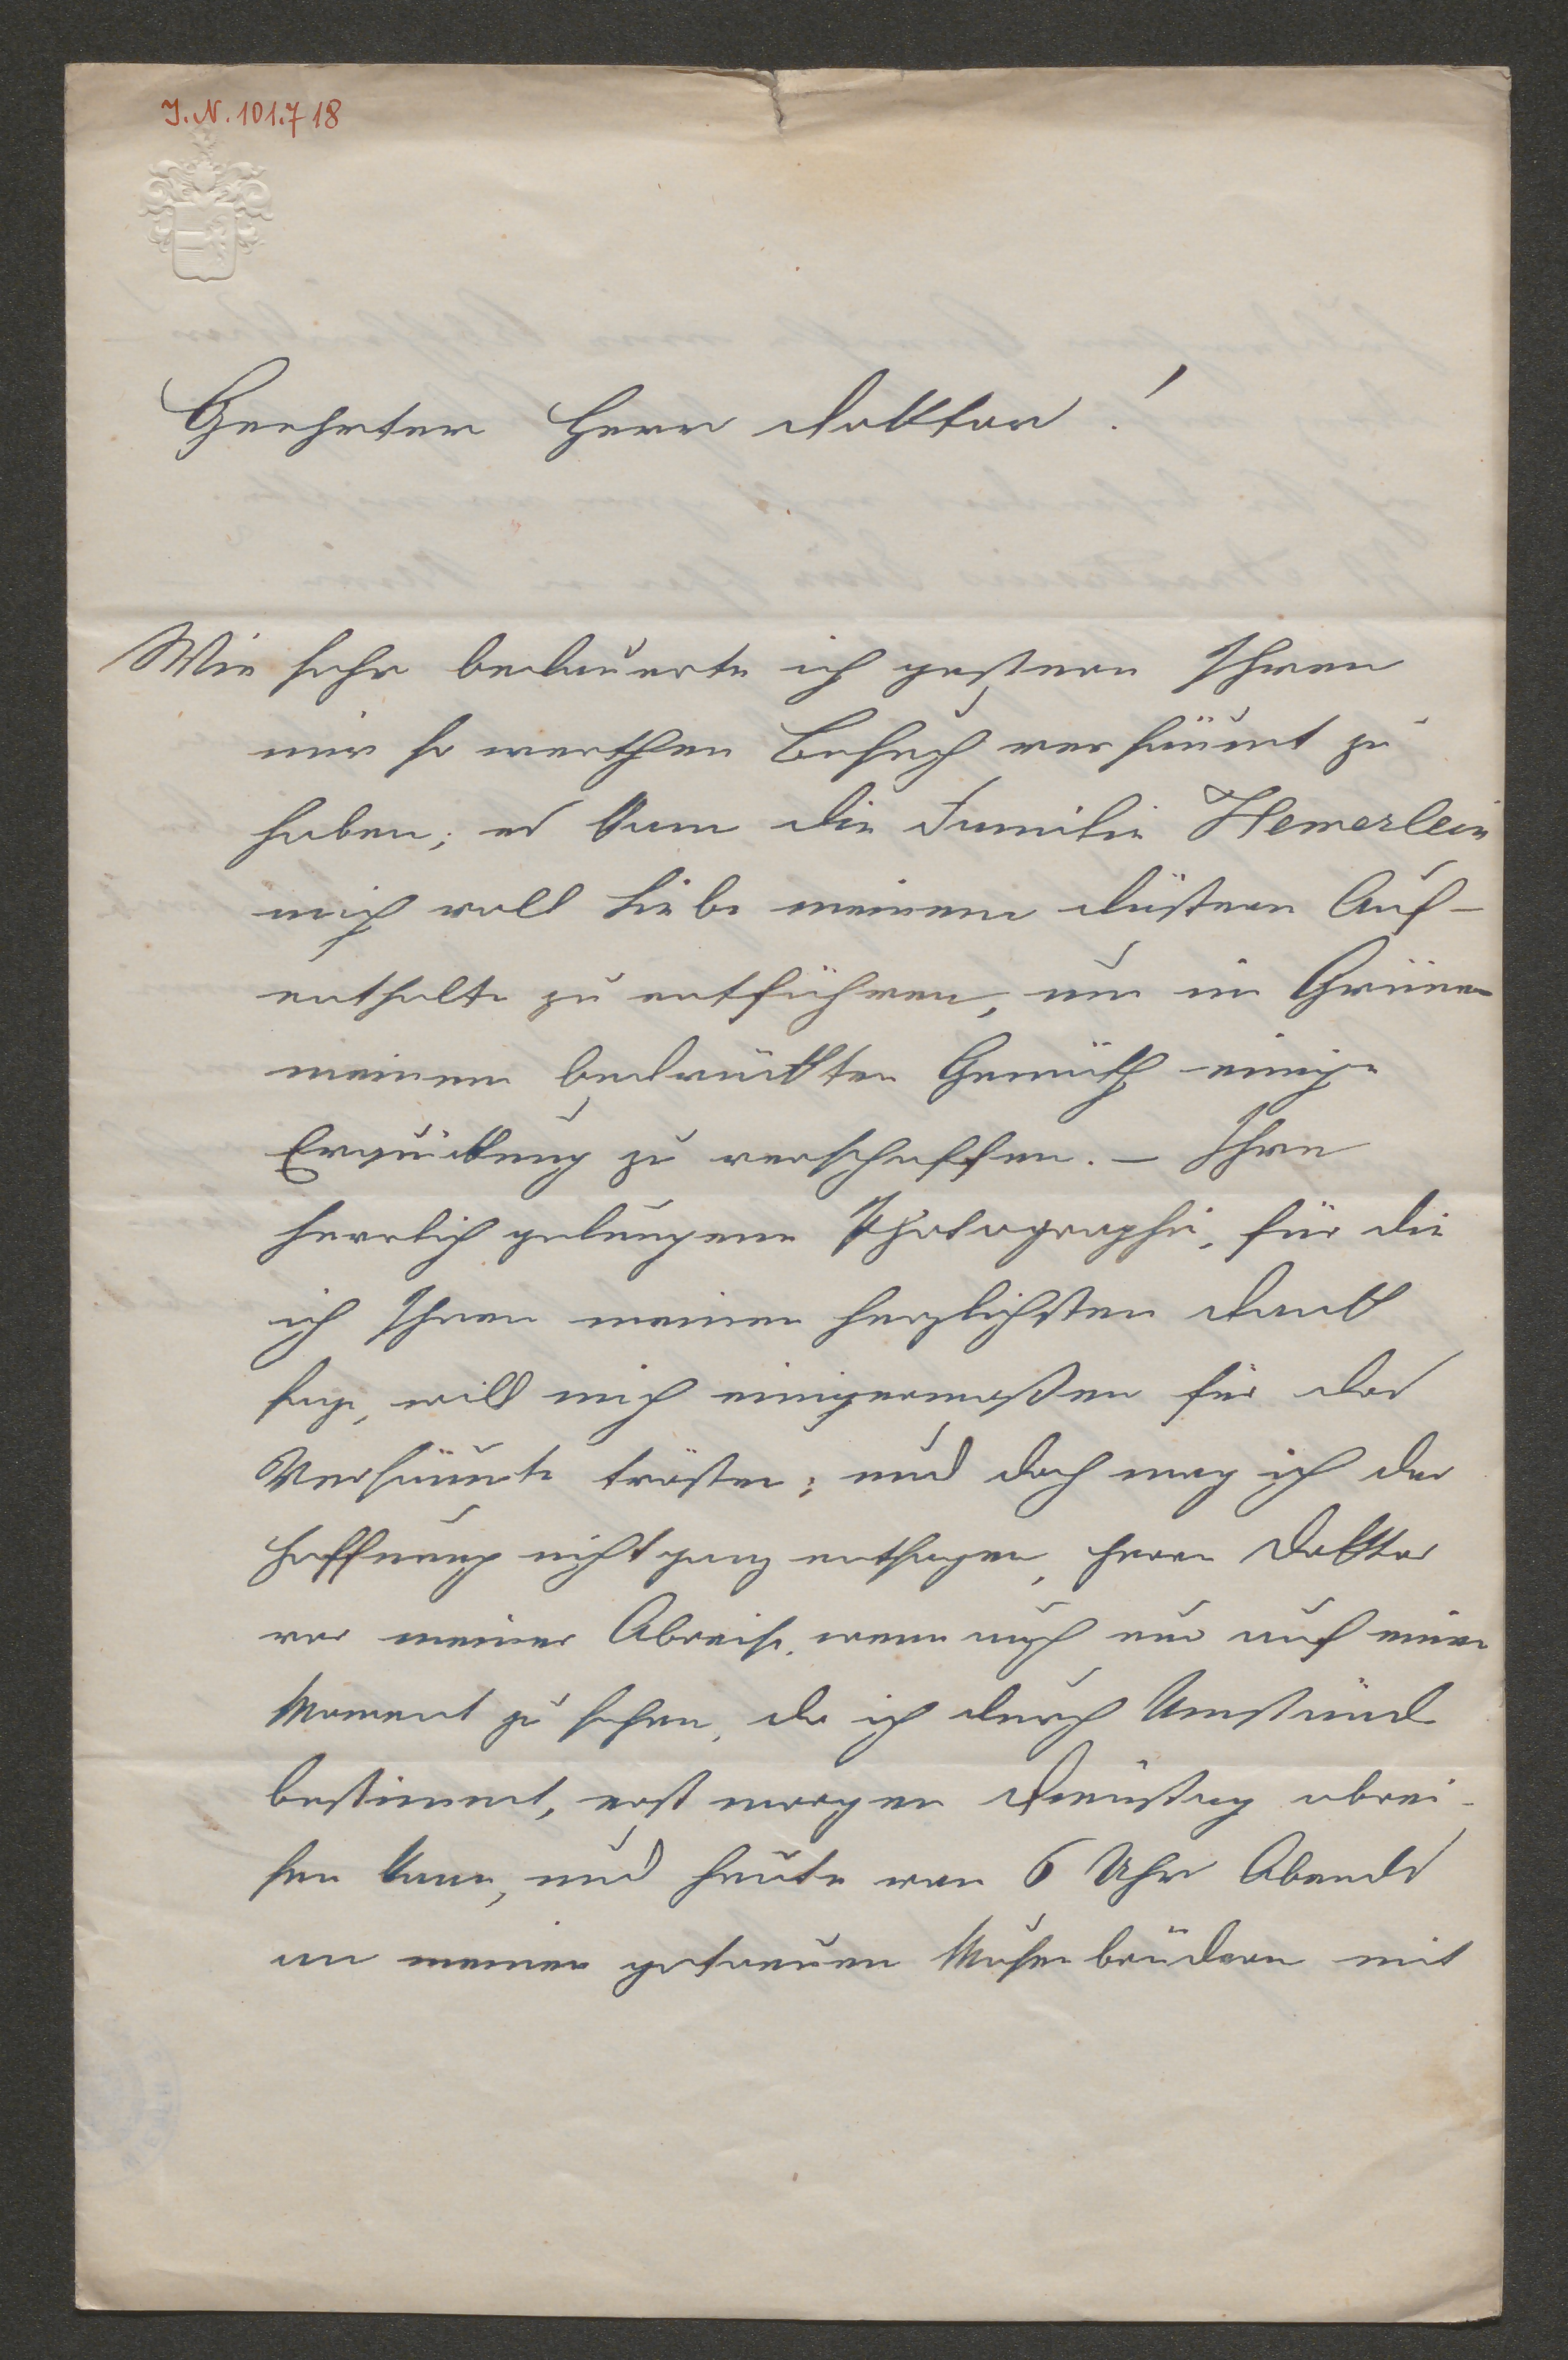 J. N. 101.718
Geehrter Herr Doktor!
Wie sehr bedauerte ich gestern Ihren
mir so werthen Besuch versäumt zu
haben; es kam die Familie Hemerlein
mich voll Liebe meinem düstern Auf-
enthalte zu entführen, um im Grünen
meinem bedrückten Gemüth einige
Erquickung zu verschaffen. – Ihre
herrlich gelungene Photographie, für die
ich Ihnen meinen herzlichsten Dank
sage, will mich einigermaßen für das
Versäumte trösten; und doch mag ich der
Hoffnung nicht ganz entsagen, Herrn Doktor
vor meiner Abreise, wenn auch nur auf einen
Moment zu sehen, da ich durch Umstände
bestimmt, erst morgen Dienstag abrei-
sen kann, und heute von 6 Uhr Abends
an meinen getreuen Musenbrüdern mit